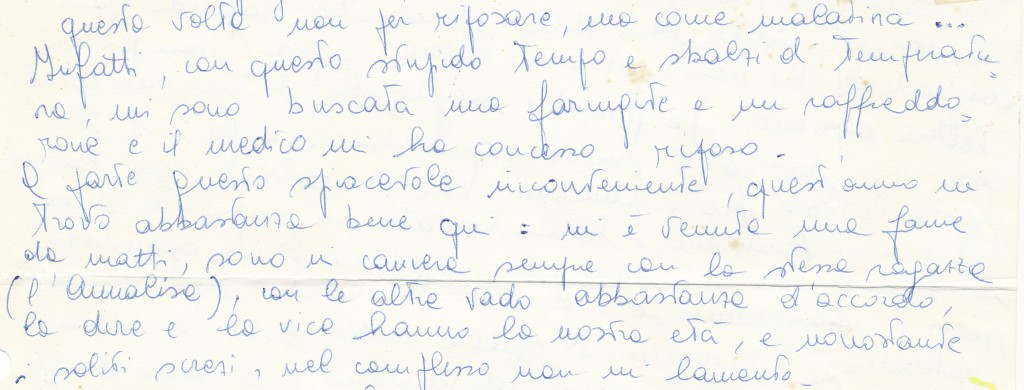 questa volta non per riposare, ma come malatina ...
Infatti, con questo stupido tempo e sbalzi d temperatu=
ra, mi sono buscata una faringite e un raffreddo=
rone e il medico mi ha concesso riposo.
A parte questo spiacevole inconveniente, quest'anno mi
trovo abbastanza bene qui : mi è venuta una fame
da matti, sono in camera sempre con la stessa ragazza
(l'Annalisa), con le altre vado abbastanza d'accordo,
la dire e la vice hanno la nostra età, e nonostante
i soliti screzi, nel complesso non mi lamento.